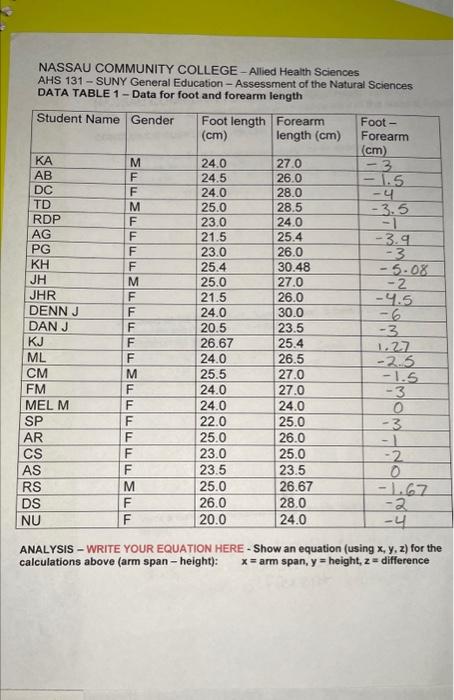 NASSAU COMMUNITY COLLEGE – Allied Health Sciences
AHS 131 – SUNY General Education – Assessment of the Natural Sciences
DATA TABLE 1 – Data for foot and forearm length
Student Name Gender Foot length (cm) Forearm length (cm) Foot – Forearm (cm)
KA M 24.0 27.0 -3
AB F 24.5 26.0 -1.5
DC F 24.0 28.0 -4
TD M 25.0 28.5 -3.5
RDP F 23.0 24.0 -1
AG F 21.5 25.4 -3.9
PG F 23.0 26.0 -3
KH F 25.4 30.48 -5.08
JH M 25.0 27.0 -2
JHR F 21.5 26.0 -4.5
DENN J F 24.0 30.0 -6
DAN J F 20.5 23.5 -3
KJ F 26.67 25.4 1.27
ML F 24.0 26.5 -2.5
CM M 25.5 27.0 -1.5
FM F 24.0 27.0 -3
MEL M F 24.0 24.0 0
SP F 22.0 25.0 -3
AR F 25.0 26.0 -1
CS F 23.0 25.0 -2
AS F 23.5 23.5 0
RS M 25.0 26.67 -1.67
DS F 26.0 28.0 -2
NU F 20.0 24.0 -4
ANALYSIS – WRITE YOUR EQUATION HERE - Show an equation (using x, y, z) for the
calculations above (arm span – height): x = arm span, y = height, z = difference